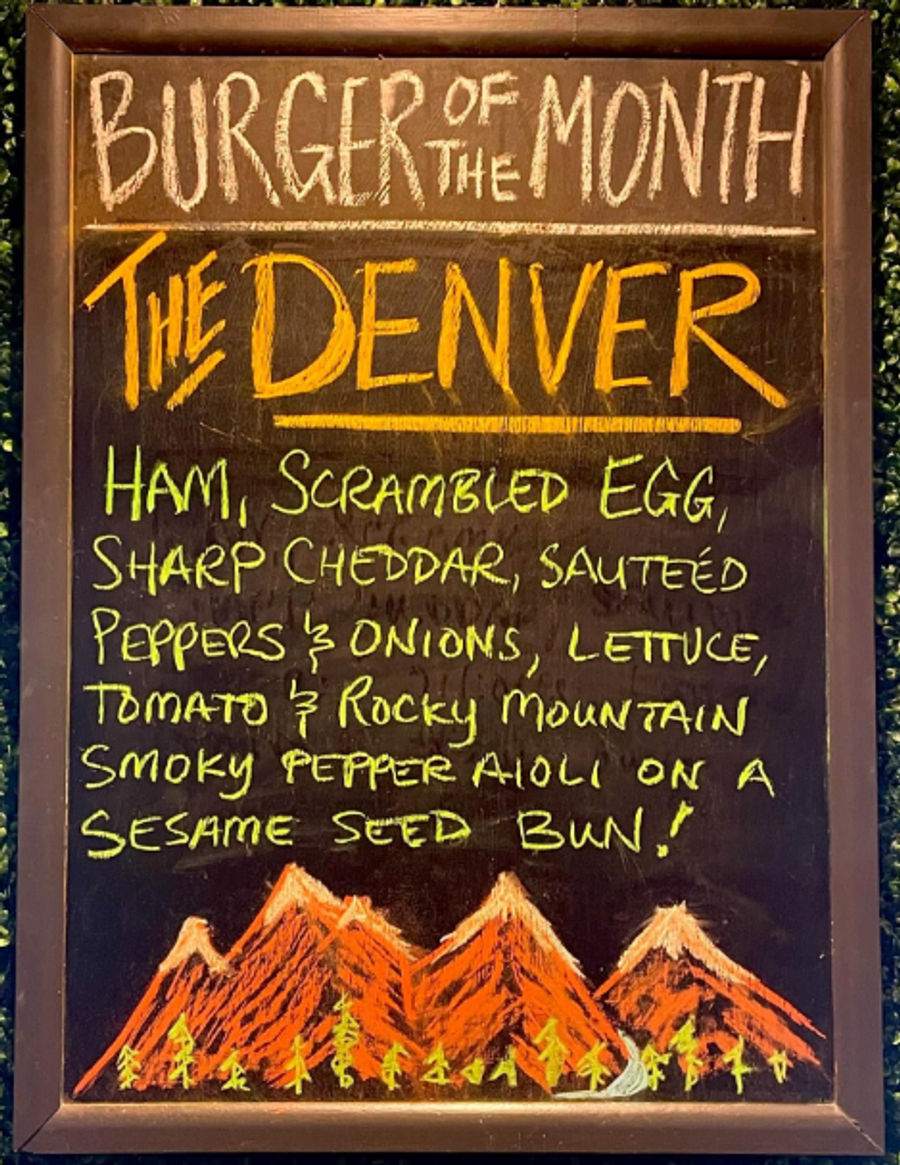 BURGER OF THE MONTH
THE DENVER
HAM, SCRAMBLED EGG,
SHARP CHEDDAR, SAUTEÉD
PEPPERS & ONIONS, LETTUCE,
TOMATO & ROCKY MOUNTAIN
SMOKY PEPPER AIOLI ON A
SESAME SEED BUN!